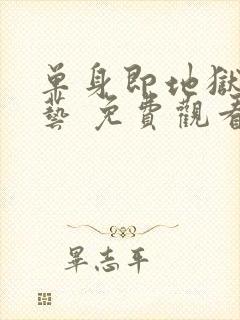 單身即地獄
藝 免費觀看
畢志平